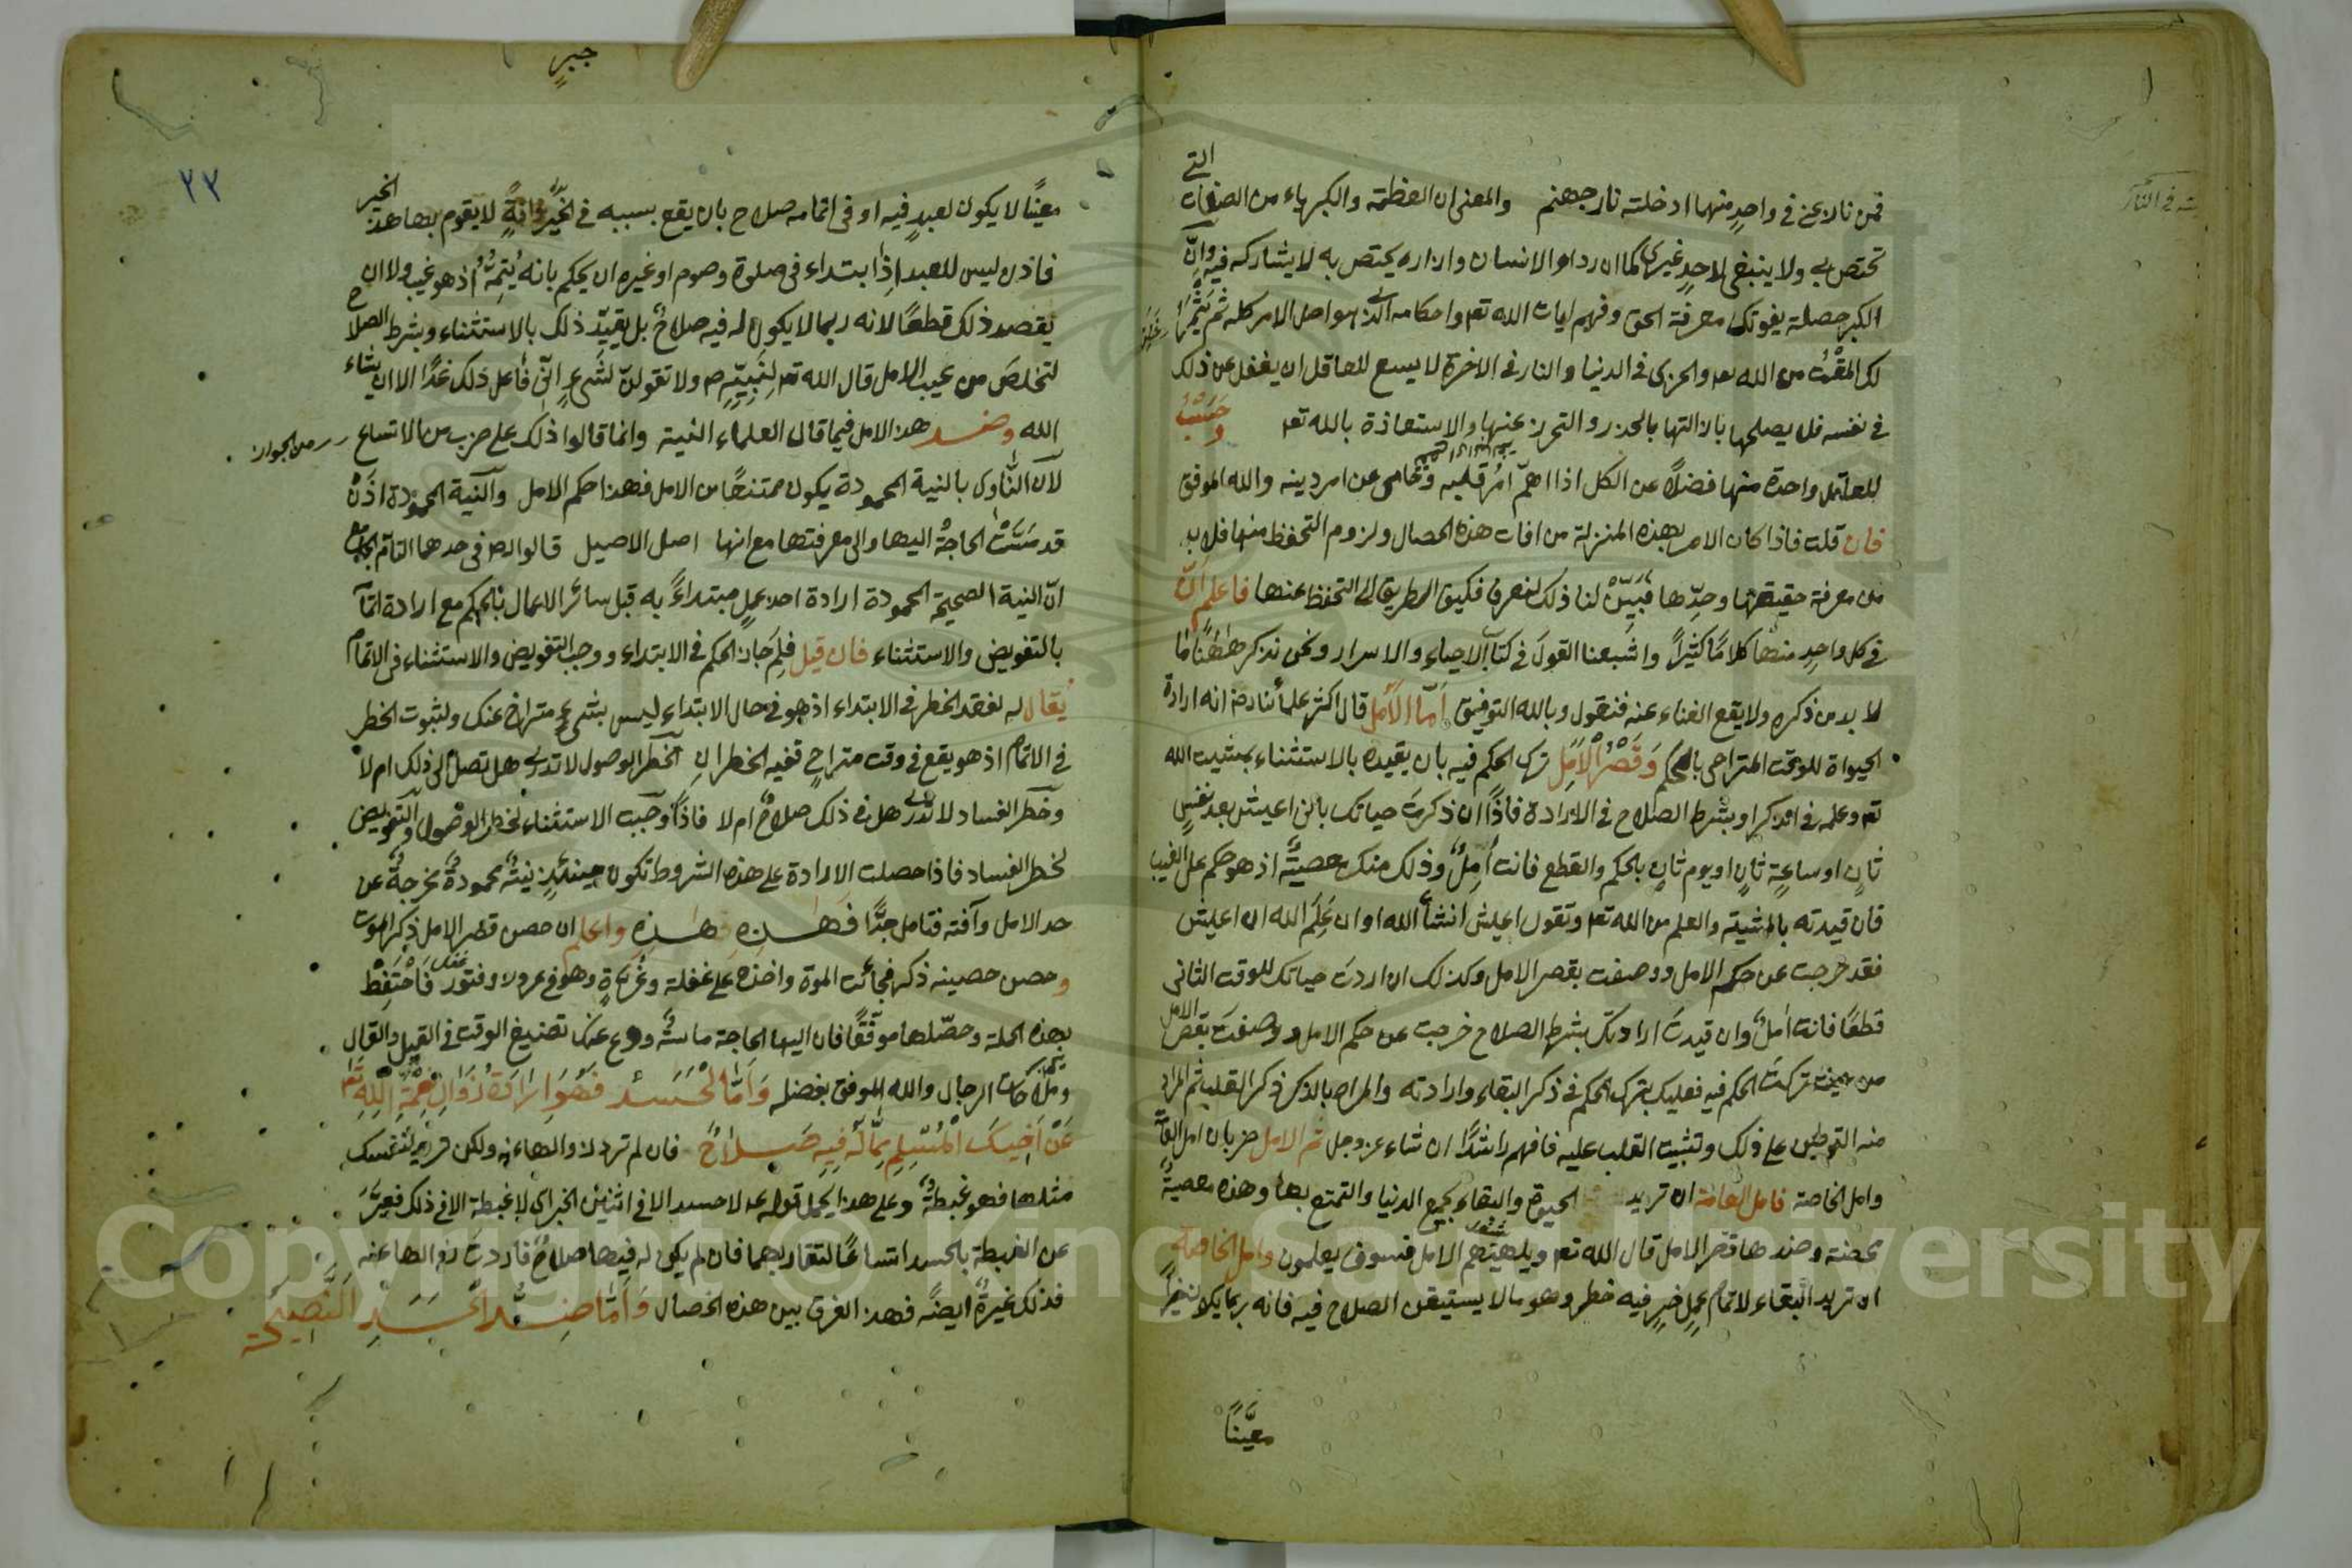 فمن نازعني في واحدٍ منهما ادخلته نار جهنم والمعنى ان العظمة والكبرياء من الصفات التي
تختص بي ولا ينبغي لاحدٍ غيري كما ان رداء الانسان وازاره يختص به لا يشاركه فيه وانّ
الكبر خصلة يفوتك معرفة الحق وفهم ايات الله تعـ واحكامه الذي هو اصل الامر كله ثم يثمر
لك المقْتَ من الله تعـ والخزى في الدنيا والنار في الاخرة لا يسع للعاقل ان يغفل عن ذلك
في نفسه فلا يصلحها بازالتها بالحذر والتحرز عنها والاستعاذة بالله تعـ وحَسْبُ
للعاقل واحدة منها فضلاً عن الكل اذا اهمّ امْرُ قلبه وتحامى عن امر دينه والله الموفق
فان قلت فاذا كان الامر بهذه المنزلة من افات هذه الخصال ولزوم التحفظ منها فلا بد
من معرفة حقيقتها وحدّها فبَيّنْ لنا ذلك لنعرف فكيف الطريق الى التحفظ عنها فاعلم انّ
في كل واحدٍ منها كلامًا كثيرًا واشبعنا القولَ في كتاب الاحياء والاسرار ونحن نذكر ههنا ما
لا بد من ذكره ولا يقع الغناء عنه فنقول وبالله التوفيق امّا الاَمَل قال اكثر علمائنا رضـ انه ارادة
الحيوة للوقت المتراخى بالحكم وَقَصْرُ الْاَمَلِ ترك الحكم فيه بان يقيده بالاستثناء بمشيت الله
تعـ وعلمه في الذكر او بشرط الصلاح في الارادة فاذًا ان ذكرتَ حياتك بانى اعيش بعد نفسٍ
ثانٍ او ساعةٍ ثانٍ او يوم ثانٍ بالحكم والقطع فانت اٰمِلٌ وذلك منك معصيةٌ اذ هو حكم على الغيب
فان قيدته بالمشية والعلم من الله تعـ وتقول اعيش انشأ الله او ان عَلِمَ الله ان اعيش
فقد خرجت عن حكم الامل ووصفت بقصر الامل وكذلك ان اردتَ حياتك للوقت الثانى
قطعًا فانت اٰملٌ وان قيدتَ ارادتك بشرط الصلاح خرجت عن حكم الامل ووصفتَ بقصر الامل
من حيث تركتَ الحكم فيه فعليك بترك الحكم في ذكر البقاء وارادته والمراد بالذكر ذكر القلب ثم المراد
منه التوطين على ذلك وتثبيت القلب عليه فافهم راشدًا ان شاء عز وجل ثم الامل ضربان امل العامّة
وامل الخاصة فامل العامة ان تريد الحيوة والبقاء لجمع الدنيا والتمتع بها وهذه معصيةٌ
محضة وضدها قصر الامل قال الله تعـ ويلههم الامل فسوف يعلمون وامل الخاصة
ان تريد البقاء لاتمام عملِ خيرٍ فيه خطر وهو ما لا يستيقن الصلاح فيه فانه ربما يكون خيرً
معيَّنًا
جبر
٢٣
معينًا لا يكون لعبدٍ فيه او في اتمامه صلاح بان يقع بسببه في لا يقوم بها هذا الخير
فاذن ليس للعبد اِذَا ابتداء في صلوة وصوم او غيره ان يحكم بانه يُتِمُّهُ اذ هو غيب ولا ان
يقصد ذلك قطعًا لانه ربما لا يكون له فيه صلاحٌ بل يقيدّ ذلك بالاستثناء وبشرط الصلاح
لتخلصَ من عيب الامل قال الله تعـ لِنَبِيِّهِ صـ ولا تقولنّ لشىءٍ اِنّى فاعل ذلك غدًا الا ان يشاء
الله وضد هذ الامل فيما قال العلماء النية وانما قالوا ذلك على ضرب من الاتساع من الجواز
لانّ النَّاوى بالنية المحمودة يكون ممتنعًا من الامل فهذا حكم الامل والنّية المحمودة اذْ
قد مَسَّتْ الحاجةُ اليها والى معرفتها مع انها اصل الاصيل قالوا في حدها التام الجامع
انّ النية الصحيحة المحمودة ارادة اخذ عملٍ مبتداءً به قبل سائر الاعمال بالحكم مع ارادة اتمامه
بالتفويض والاستثناء فان قيل فلِمَ جاز الحكم في الابتداء ووجب التفويض والاستثناء في الاتمام
يُقال له لفقد الخطر في الابتداء اذ هو في حال الابتداء ليس بشىءٍ متراخ عنك ولثبوت الخطر
في الاتمام اذ هو يقع في وقت متراخٍ ففيه الخطران خطر الوصول لا تدرى هل تصل الى ذلك ام لا
وخطر الفساد لا تدرى هل في ذلك صلاحٌ ام لا فاذًا وجَبَ الاستثناء لخطر الوصول والتفويض
لخطر الفساد فاذا حصلت الارادة على هذه الشروط تكون حينئذٍ نيةً محمودةً مخرجةً عن
حد الامل وآفته فتامل جدًّا فهذه هذه واعلم ان حصن قصر الامل ذكر الموت
وحصن حصينه ذكر فجأت الموة واخذه على غفلة وغرّةٍ وهو في غرور وفتور فاحتفظْ
بهذه الجملة وحصّلها موفّقًا فان اليها الحاجة ماسةٌ ودع عنك تضييع الوقت في القيل والقال
وملاكات الرجال والله الموفق بفضله وَاَمَّا الْحَسَدُ فَهُوَ اِرَادَةُ زَوَالِ نِعْمَةِ اللّٰهِ تَعَـ
عَنْ اَخِيكَ الْمُسْلِمِ مِمَّا لَهُ فِيهِ صَلَاحٌ فان لم ترد زوالها عنه ولكن تريد لنفسك
مثلها فهو غبطةٌ وعلى هذا يحمل قوله عـ لا حسد الا في اثنين الخبر اى لا غبطة الا في ذلك فعبَّرَ
عن الغبطة بالحسد اتساعًا لتقاربهما فان لم يكن له فيها صلاحٌ فاردتَ زوالها عنه
فذلك غيرةٌ ايضًا فهذ الفرق بين هذه الخصال وَاَمَّا ضِدُّ الْحَسَدِ النَّصِيحَة
Copyright © King Saud University